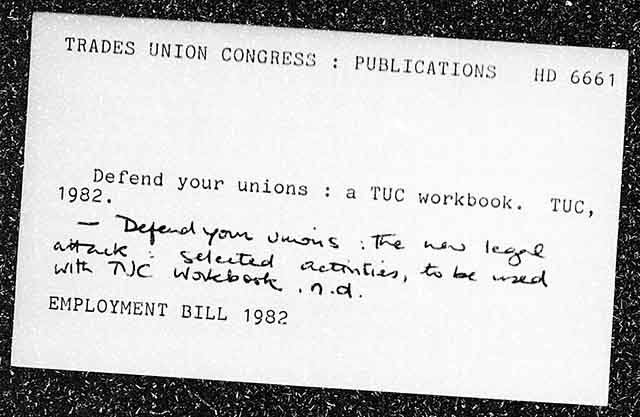 TRADES UNION CONGRESS : PUBLICATIONS HD 6661
Defend your unions : a TUC workbook. TUC,
1982.
— Defend your unions : the new legal
attack : selected activities, to be used
with TUC Workbook . n.d.
EMPLOYMENT BILL 1982